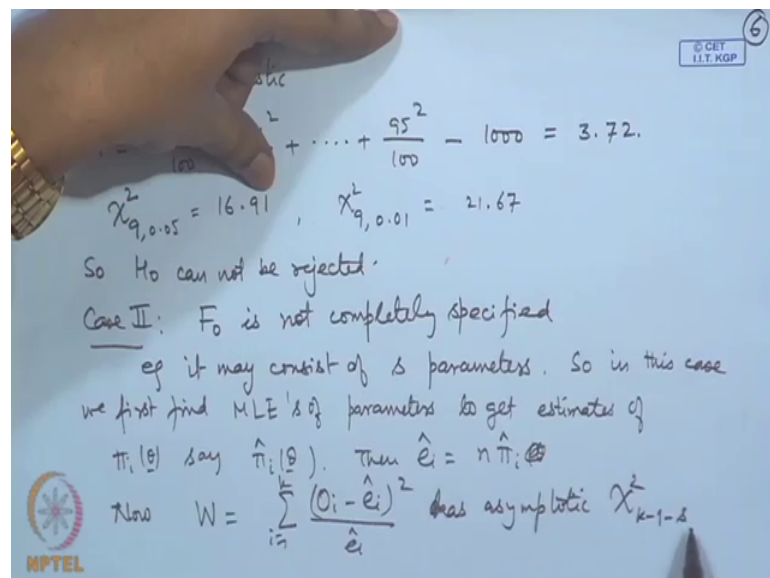 6
© CET
I.I.T. KGP
100 + .... + 95² / 100 - 1000 = 3.72.
χ²9,0.05 = 16.91 , χ²9,0.01 = 21.67
So H₀ can not be rejected.
Case II: F₀ is not completely specified
eg it may consist of s parameters. So in this case
we first find MLE's of parameters to get estimates of
πi(θ) say π̂i(θ). Then êi = n π̂i
Now W = Σ i=1 k (Oi - êi)² / êi has asymptotic χ²k-1-s
NPTEL